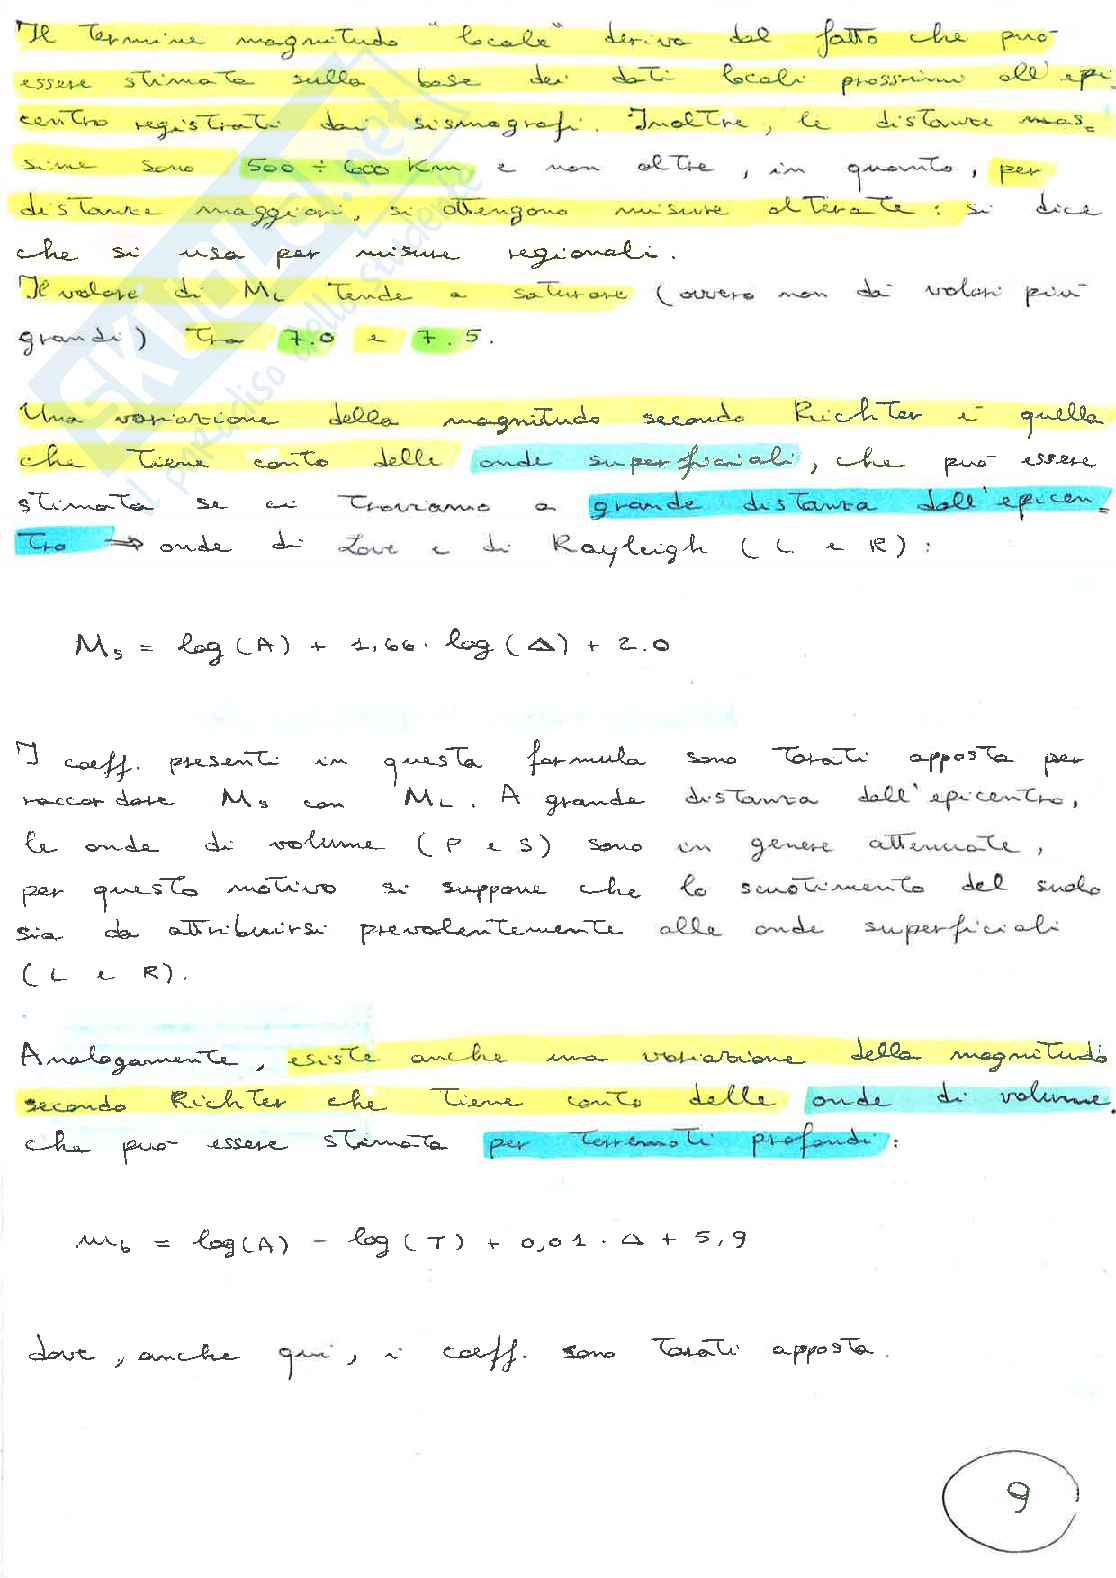 Il termine magnitudo "locale" deriva dal fatto che può
essere stimata sulla base dei dati locali prossimi all'epi-
centro registrati dai sismografi. Inoltre, le distanze mas-
sime sono 500 ÷ 600 Km e non oltre, in quanto, per
distanze maggiori, si ottengono misure alterate: si dice
che si usa per misure regionali.
Il valore di ML tende a saturare (ovvero non dà valori più
grandi) tra 7.0 e 7.5.
Una variazione della magnitudo secondo Richter è quella
che tiene conto delle onde superficiali, che può essere
stimata se ci troviamo a grande distanza dall'epicen-
tro ⇒ onde di Love e di Rayleigh (L e R):
Ms = log(A) + 1,66· log(Δ) + 2.0
I coeff. presenti in questa formula sono tarati apposta per
raccordare Ms con ML. A grande distanza dall'epicentro,
le onde di volume (P e S) sono in genere attenuate,
per questo motivo si suppone che lo scuotimento del suolo
sia da attribuirsi prevalentemente alle onde superficiali
(L e R).
Analogamente, esiste anche una variazione della magnitudo
secondo Richter che tiene conto delle onde di volume,
che può essere stimata per terremoti profondi:
mb = log(A) - log(T) + 0,01 · Δ + 5,9
dove, anche qui, i coeff. sono tarati apposta.
9
SKUOLA.net
il paradiso dello studente